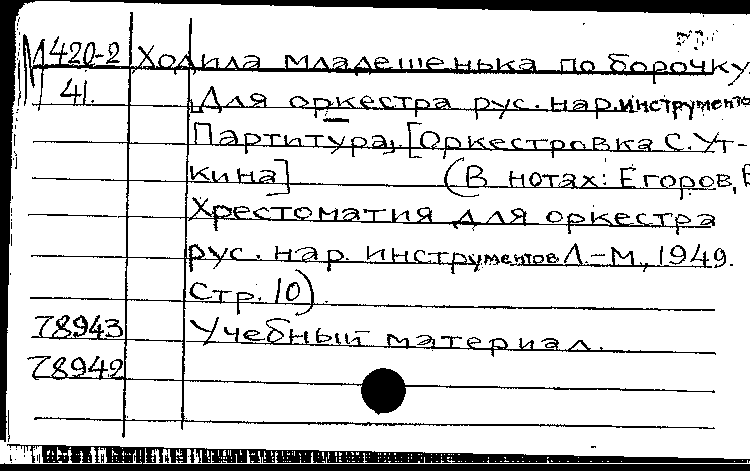 М 420-2 Ходила младешенька по борочку
41. Для оркестра рус. нар. инструменто
Партитура, [Оркестровка С. Ут-
кина] (В нотах: Егоров, Б
Хрестоматия для оркестра
рус. нар. инструментов Л-М, 1949.
Стр. 10).
78943 Учебный материал.
78942